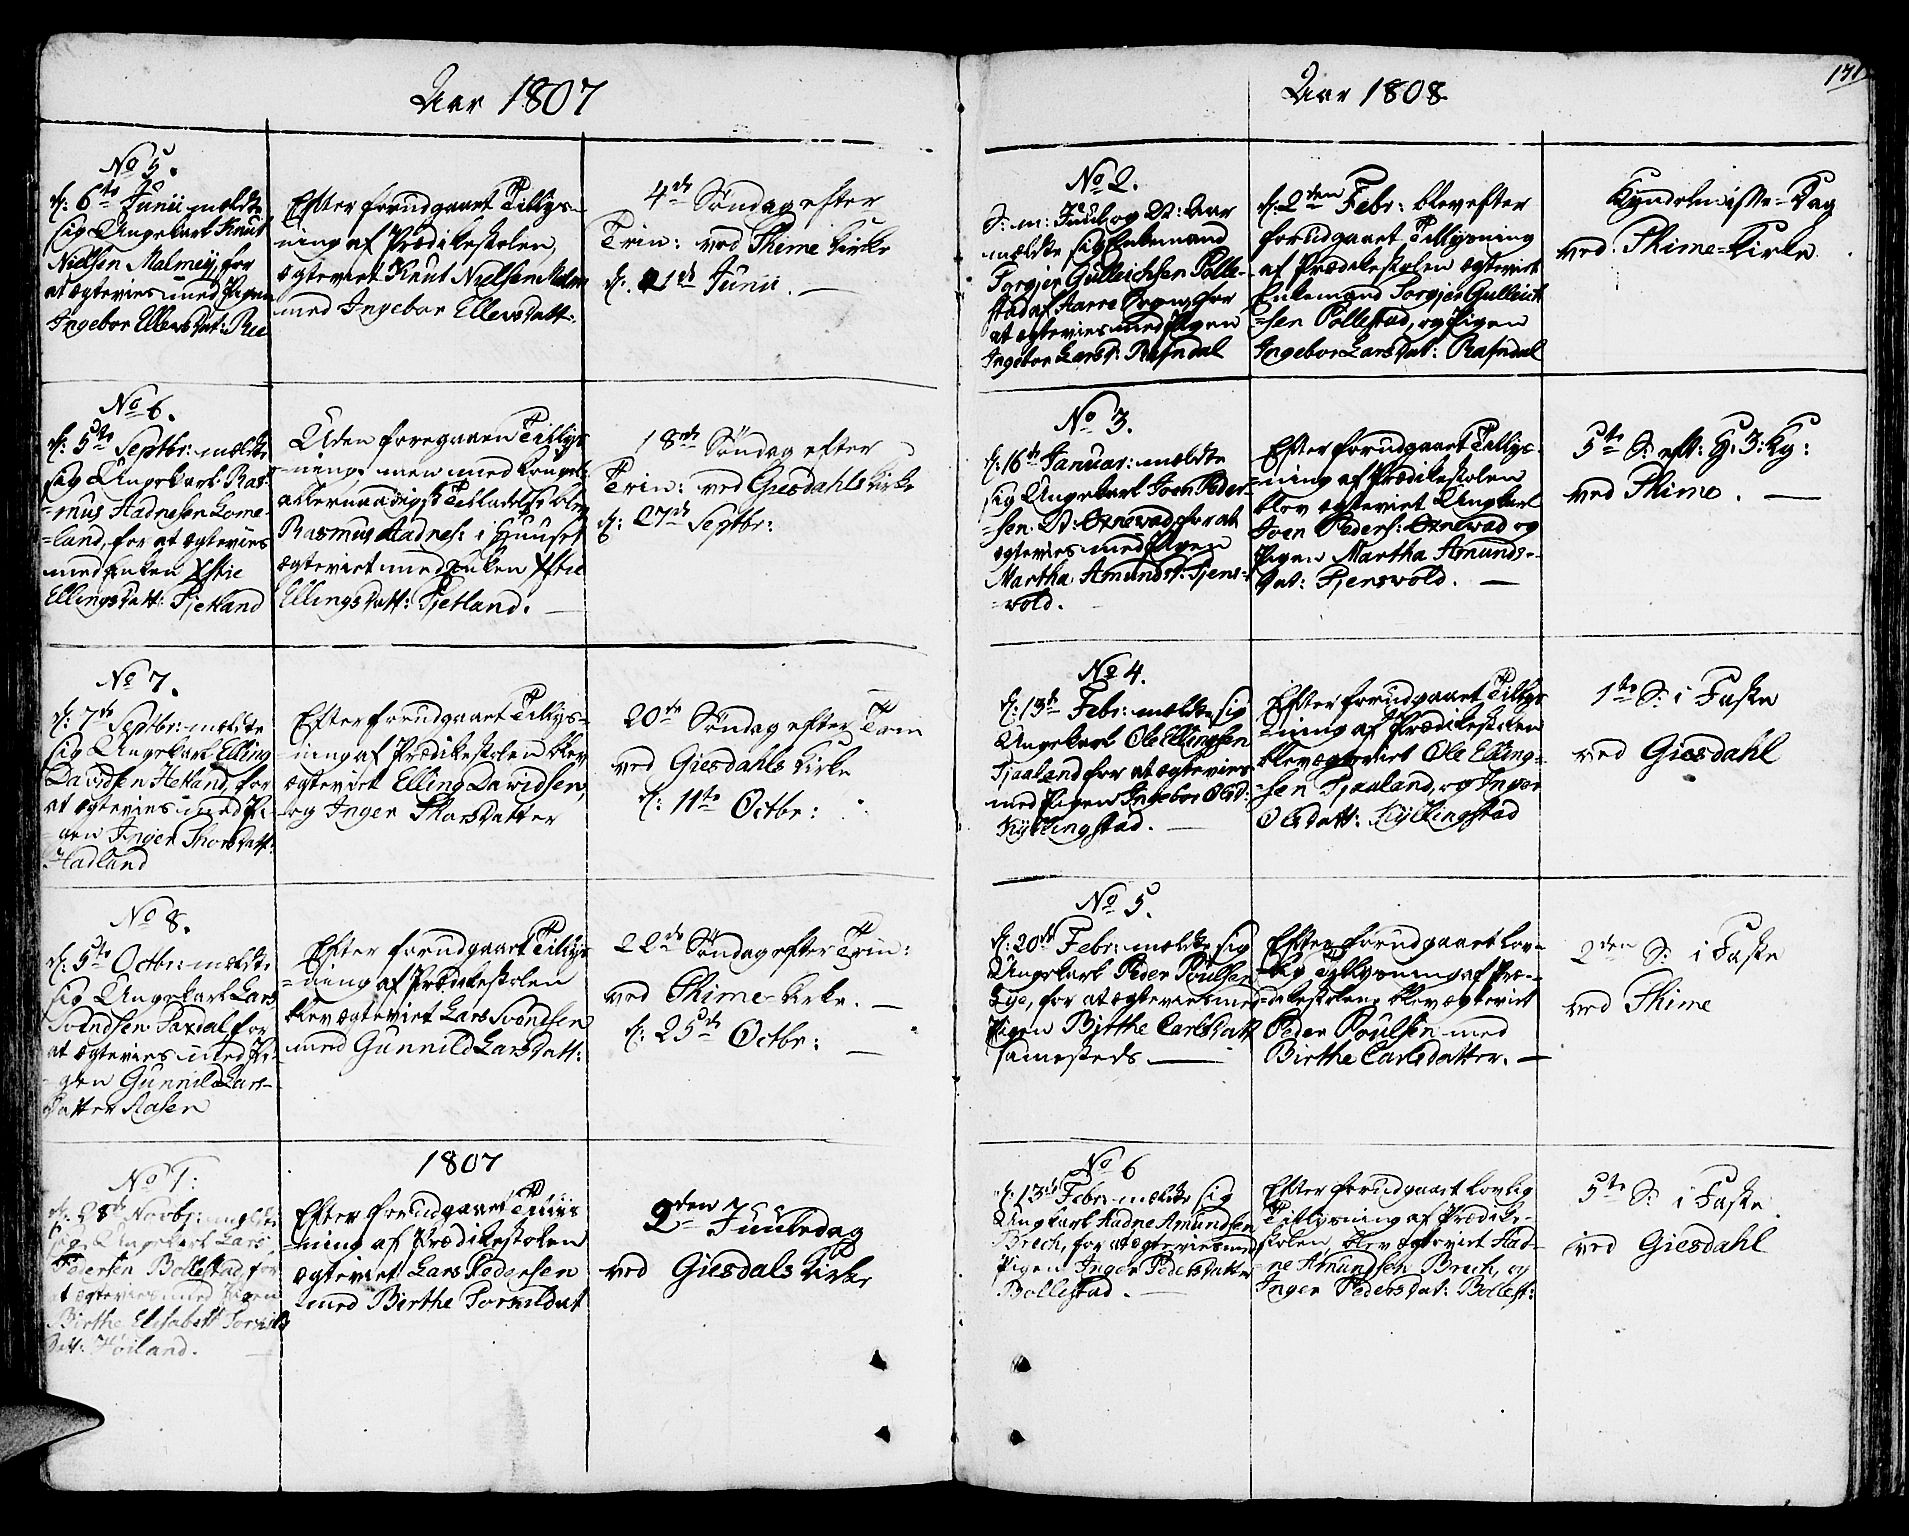 Aar 1807
No 5.
d: 6te Junii meldte
sig Ungekarl Knut
Nielsen Malmey, for
at ægtevies med Pigen
Ingebor Ellevsdat: Ree
Efter forudgaaet Tillys-
ning af Prædikestolen,
ægteviet Knut Nielsen Malm
med Ingebor Ellevsdatt:
4de Søndag efter
Trin: ved Thime Kirke
d: 21de Junii. —
No 6.
d: 5te Septbr: meldte
sig Ungekarl Ras-
=mus Aadnesen Lome-
=land, for at ægtevies
med Enken Xstie
Ellingsdatt: Tjetland
Uden foregaaen Tillys
=ning, men med Kongel:
allernaadigst Tilladelse blev
Rasmus Aadnes: i Huuset
ægteviet med Enken Xstie
Ellingsdatt: Tjetland. —
18de Søndag efter
Trin: ved Giesdahls Kirke
d: 27de Septbr:
No 7.
d: 7de Septbr: meldte
sig Ungekarl Elling
Davidsen Hetland, for
at ægtevies med Pi-
=gen Inger Thorsdatt:
Hadland
Efter forudgaaet Tillys-
ning af Prædikestolen blev
ægteviet Elling Davidsen,
og Inger Thorsdatter
20de Søndag efter Trin
ved Giesdahls Kirke
d: 11te Octbr:
No 8.
d: 5te Octbr: meldte
sig Ungekarl Lars
Svendsen Taxdal, for
at ægtevies med Pi-
=gen Gunnild Lars-
datter Aasen
Efter forudgaaet Tillys
=ning af Prædikestolen
blev ægteviet Lars Svendsen
med Gunnild Larsdatt:
22de Søndag efter Trin:
ved Thime Kirke. —
d: 25de Octbr: —
No 1:
d: 28de Novbr: meldte
sig Ungekarl Lars
Pedersen Bollestad, for
at ægtevies med Pigen
Birthe Elisabett Torkils
datt: Høiland.
1807
Efter forudgaaet Tillys
=ning af Prædikestolen
ægteviet Lars Pedersen
med Birthe Torkildat
2den Juuledag
ved Giesdals Kirke
Aar 1808
131
No 2.
S: m: Juul og N: Aar
meldte sig Enkemand
Torgjer Gulleichsen Polle-
stad af Haaræ Sogn, for
at ægtevies med Pigen
Ingebor Larsd: Rafndal
d: 2den Febr: blev efter
forudgaaet Tillysning
af Prædikestolen ægteviet
Enkemand Torgjer Gulleich
=sen Pollestad, og Pigen
Ingebor Larsdat: Rafndal
Kyndelmisse-Dag
ved Thime-Kirke.
No 3.
d: 16de Januar: meldte
sig Ungekarl Joen Peder-
=sen N: Oznevad, for at
ægtevies med Pigen
Martha Amundsd: Tjens-
=vold. —
Efter forudgaaet Tillys-
=ning af Prædikestolen
blev ægteviet Ungkarl
Joen Peders: Oznevad og
Pigen Martha Amunds-
dat: Tjensvold. —
5te S: eft: H: 3: Ky:
ved Thime. —
No 4.
d: 13de Febr: meldte sig
Ungekarl Ole Ellingsen
Tjaaland for at ægtevies
med Pigen Ingebor Olsd:
Kyllingstad. —
Efter forudgaaet Tillys
=ning af Prædikestolen
blev ægteviet Ole Elling-
=sen Tjaaland, og Ingebor
Olsdatt: Kyllingstad
1te S: i Faste
ved Giesdahl
No 5.
d: 20de Febr: meldte sig
Ungekarl Peder Poulsen
Lye, for at ægtevies med
Pigen Birthe Carlsdatt
samesteds. —
Efter forudgaaet lov-
=lig Tillysning af Præ-
=dikestolen, blev ægteviet
Peder Poulsen med
Birthe Carlsdatter. —
2den S: i Faste
ved Thime
No 6
d: 13de Febr: meldte sig
Ungkarl Aadne Amundsen
Brech, for at ægtevies med
Pigen Inger Pedersdatter
Bollestad. —
Efter forudgaaet lovlig
Tillysning af Prædike-
stolen, blev ægteviet Aad-
=ne Amundsen Brech, og
Inger Pedersdat: Bollest:
5te S: i Faste.
ved Giesdahl